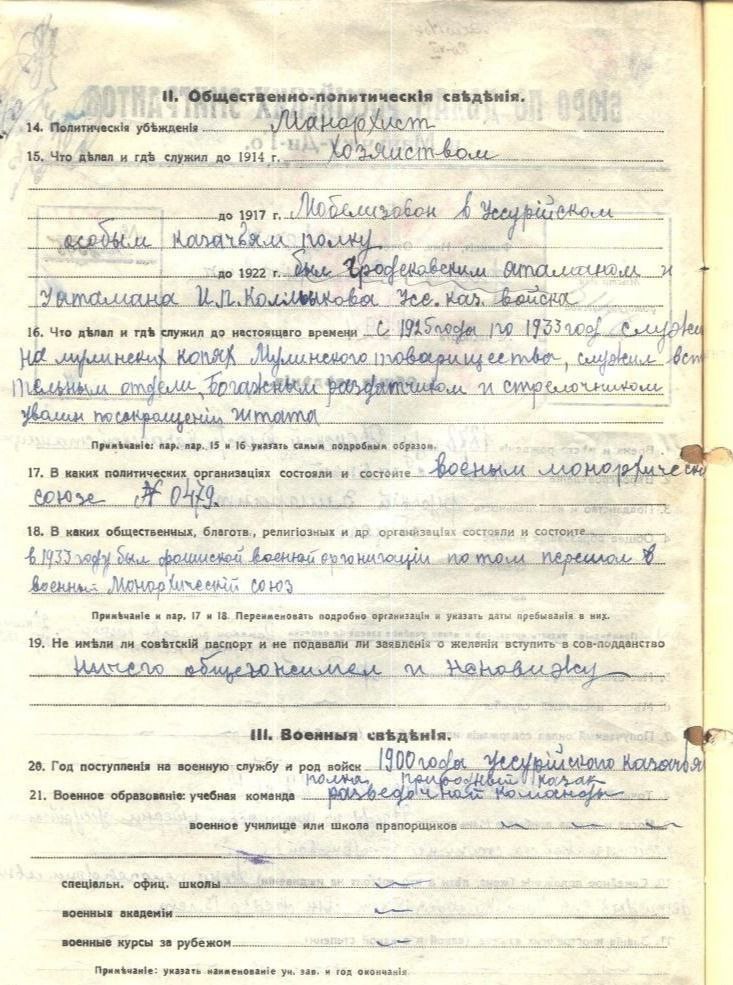 II. Общественно-политическія свѣдѣнія.
14. Политическія убѣжденія Манархист
15. Что дѣлал и гдѣ служил до 1914 г. хозяиством
до 1917 г. Мобелизован в Уссурійском
особым казачьям полку
до 1922 г. был Гродековским атаманом и
У атамана И.П. Калмыкова Усс. каз. войска
16. Что дѣлал и гдѣ служил до настоящаго времени с 1925 года по 1933 год служи
на мулинских копях Мулинского товарищества, служил
тельным отдели, богажным раздатчиком и стрелочником
уволин посокращеній штата
Примѣчаніе: пар. пар. 15 и 16 указать самым подробным образом.
17. В каких политических организаціях состояли и состоите военым монархическ
союзе № 0479.
18. В каких общественных, благотв., религіозных и др. организаціях состояли и состоите
в 1933 году был фашиской военой организаціи потом перешол в
военый Монархическій союз
Примѣчаніе и пар. 17 и 18. Переименовать подробно организаціи и указать даты пребыванія в них.
19. Не имѣли ли совѣтскій паспорт и не подавали ли заявленія о желаніи вступить в сов-подданство
ничего общегонеимел и неновижу
III. Военныя свѣдѣнія.
20. Год поступленія на военную службу и род войск 1900 года Уссурійского казачья
полка, природный казак
21. Военное образованіе: учебная команда разведочной команды
военное училище или школа прапорщиков
спеціальн. офиц. школы
военныя академіи
военные курсы за рубежом
Примѣчаніе: указать наименованіе уч. зав. и год окончанія.